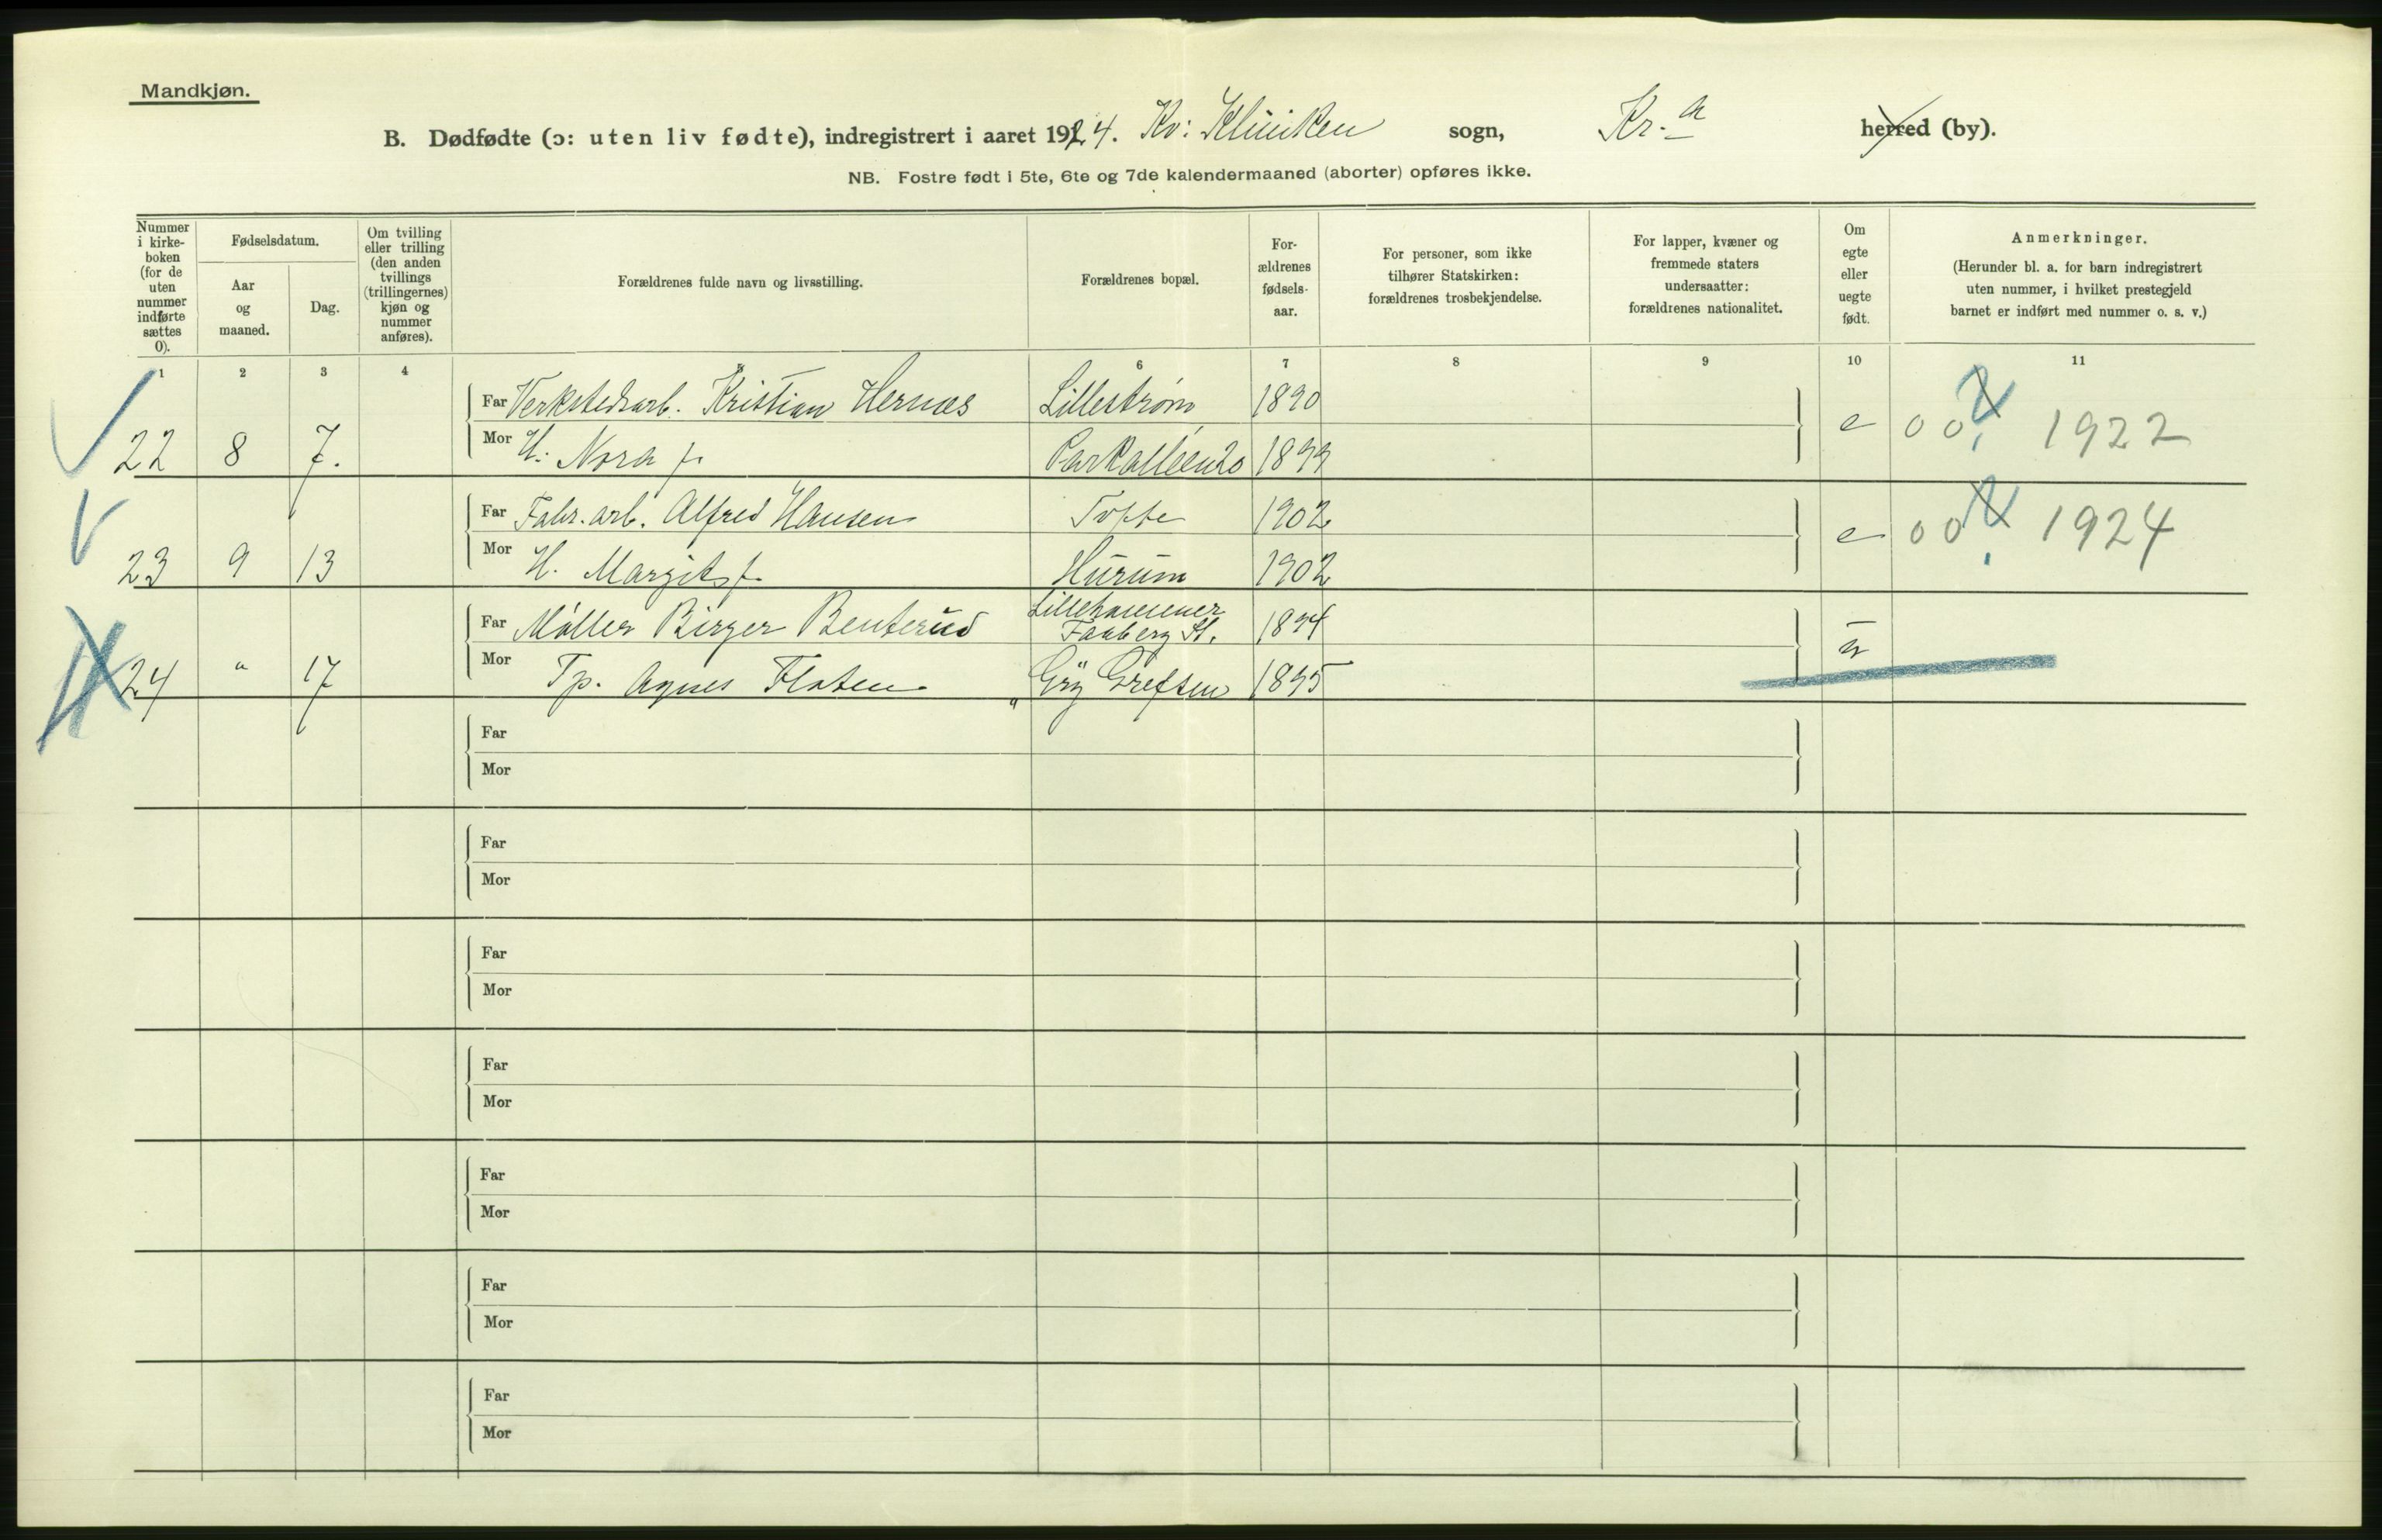 Mandkjøn.
B. Dødfødte (ɔ: uten liv fødte), indregistrert i aaret 1924. Kv: Kliniken sogn, Kr.a herred (by).
NB. Fostre født i 5te, 6te og 7de kalendermaaned (aborter) opføres ikke.
Nummer i kirke-boken (for de uten nummer indførte sættes 0).
Fødselsdatum.
Aar og maaned.
Dag.
Om tvilling eller trilling (den anden tvillings (trillingernes) kjøn og nummer anføres).
Forældrenes fulde navn og livsstilling.
Forældrenes bopæl.
For-ældrenes fødsels-aar.
For personer, som ikke tilhører Statskirken: forældrenes trosbekjendelse.
For lapper, kvæner og fremmede staters undersaatter: forældrenes nationalitet.
Om egte eller uegte født.
Anmerkninger.
(Herunder bl. a. for barn indregistrert uten nummer, i hvilket prestegjeld barnet er indført med nummer o. s. v.)
1 2 3 4 5 6 7 8 9 10 11
Far Verkstedsarb. Kristian Hernæs Lillestrøm 1890
22 8 7. Mor H. Nora f. Parkalleen 20 1899 e 00 1922
Far Fabr. arb. Alfred Hansen Tofte 1902
23 9 13 Mor H. Margit f. Hurum 1902 e 00 1924
Far Møller Birger Benterud Lillehammer Faaberg St. 1894
24 " 17 Mor Tp. Agnes Flaten Grefsen 1895 u
Far
Mor
Far
Mor
Far
Mor
Far
Mor
Far
Mor
Far
Mor
Far
Mor